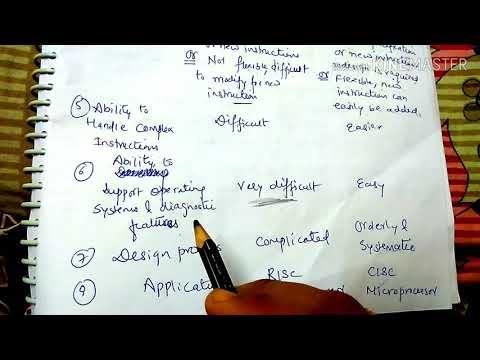 or new instructions
or Not flexible, difficult
to modify for new
instruction
or new instruction
is required
or Flexible, new
instruction can
easily be added.
KINEMASTER
5 Ability to
Handle Complex
Instructions
Difficult
Easier
6 Ability to
Support Operating
Systems & diagnostic
features
Very difficult
Easy
7 Design process
Complicated
Orderly &
Systematic
9 Applicati
RISC
CISC
Microprocessor